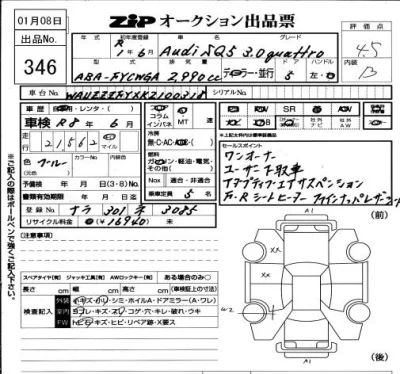 01月08日
ZiP オークション出品票
出品No.
346
初年度登録
車名
グレード
R1年6月 Audi SQ5 3.0 quattro
評価点
4.5
内装
B
ABA-FYCWGA 2,990cc
ディーラー・並行
ドア
5
ハンドル
左・右
車台No. WAUZZZFYXK2100318
シリアルNo.
車歴
自家用・レンタ・( )
車検 R8年6月
走行
21,562
マイル
コラム
インパネ
AT
MT
速
冷房
無・C・AC・AAC・( )
燃料
ガソリン・軽油・電気・その他( )
SR
AW
革
PS
PW
ナビ
TV
※上記文字は標準装備品
セールスポイント
ワンオーナー
ユーザー下取車
アダプティブエアサスペンション
F・Rシートヒーター ファインナッパレザー
色
カラーNo.
内装色
予備検 年 月 日 (3・8) No.
書類有効期限 年 月 日迄
NOX 適合・非適合
乗車定員 5 名
登録No. ナラ 301 ネ 3035
リサイクル料金 有 (¥16940) 無
【注意事項】
※ご記入の際はボールペンで強くご記入下さい。
スペアタイヤ(有) ジャッキ工具(有) AWロックキー(有) ある場合のみ○
長さ cm 幅 cm 高さ cm (車検証上の寸法)
検査記入
外装 キズ・ハリ・シミ・ホイルA・ドアミラー(A・ワレ)
室内 ヨゴレ・キズ・スレ・コゲ・穴・キレ・破れ・ウキ
FW トビ石・キズ・ヒビ・リペア跡・X要ス
(前)
A1
XX
XX
W2
A1
(後)